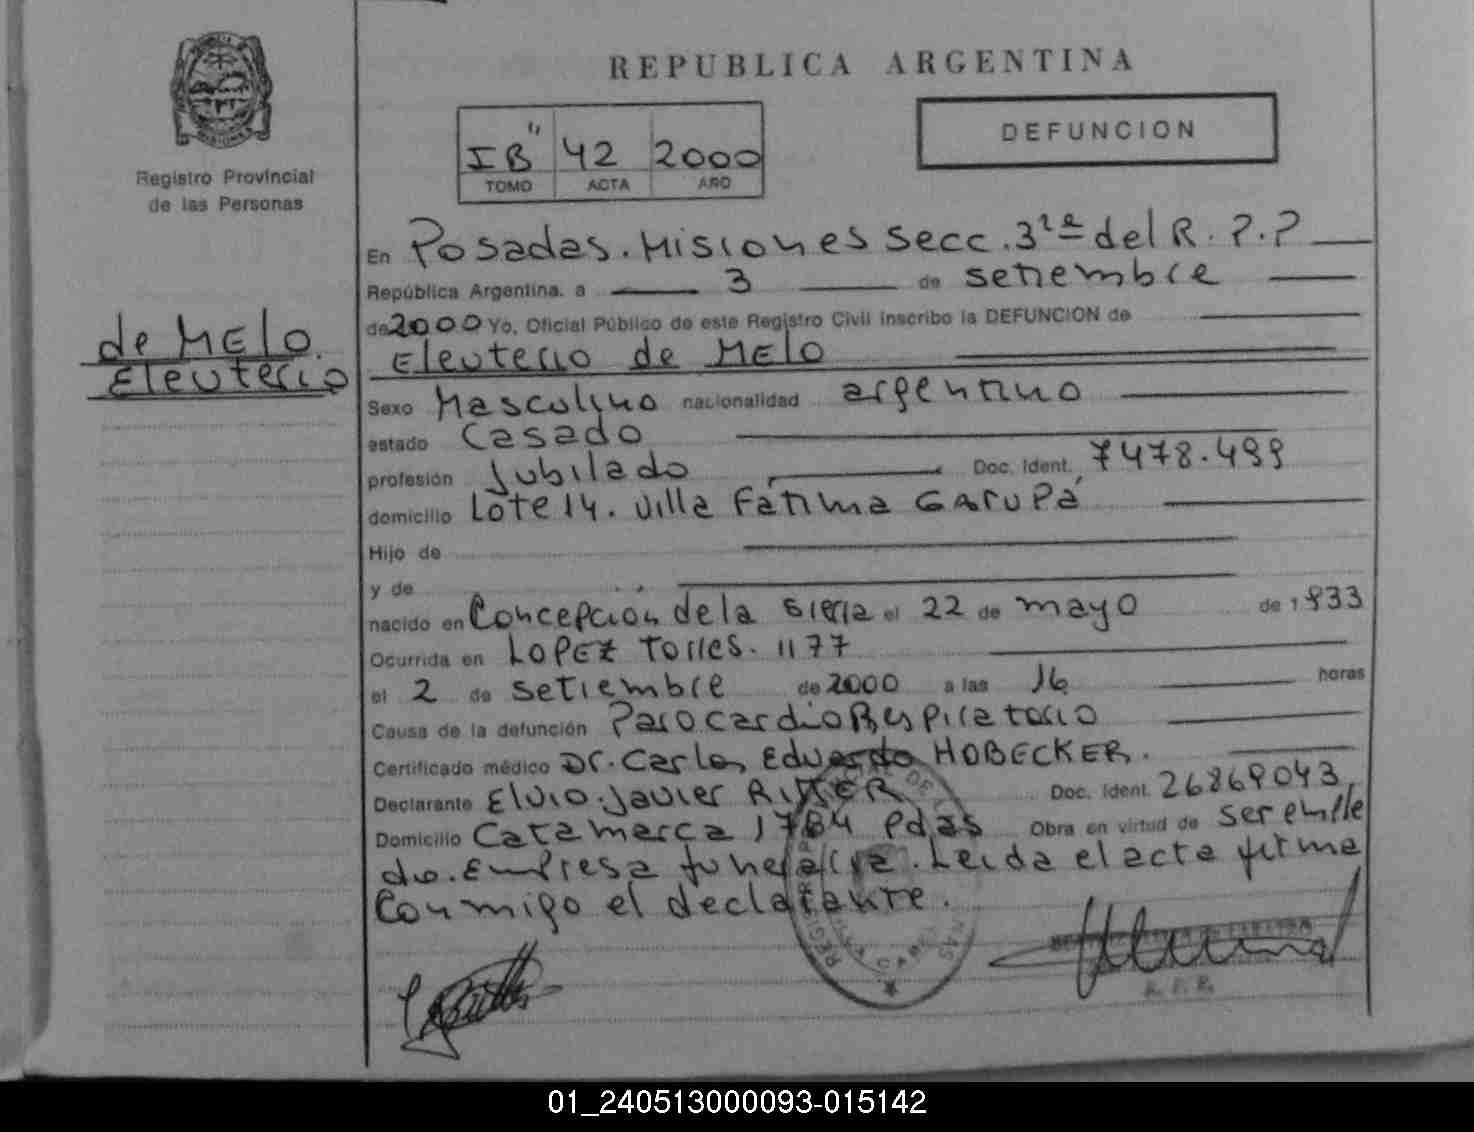 REPUBLICA ARGENTINA
IB" 42 2000
TOMO ACTA AÑO
DEFUNCION
Registro Provincial
de las Personas
de MELO.
Eleuterio
En Posadas. Misiones Secc. 3ra del R. P. P
República Argentina. a 3 de setiembre
de 2000 Yo, Oficial Público de este Registro Civil inscribo la DEFUNCION de
Eleuterio de MELO
Sexo Masculino nacionalidad argentino
estado Casado
profesión Jubilado Doc. Ident. 7478.499
domicilio Lote 14. Villa Fátima GARUPÁ
Hijo de
y de
nacido en Concepción de la Sierra el 22 de mayo de 1933
Ocurrida en LOPEZ Torres. 1177
el 2 de setiembre de 2000 a las 16 horas
Causa de la defunción Paro cardio Respiratorio
Certificado médico Dr. Carlos Eduardo HOBECKER.
Declarante Elvio. Javier RITTER Doc. Ident. 26869043
Domicilio Catamarca 1784 Pdas Obra en virtud de ser emple
do. Empresa funeraria. Leida el acta firma
Conmigo el declarante.
R. P. P.
01_240513000093-015142